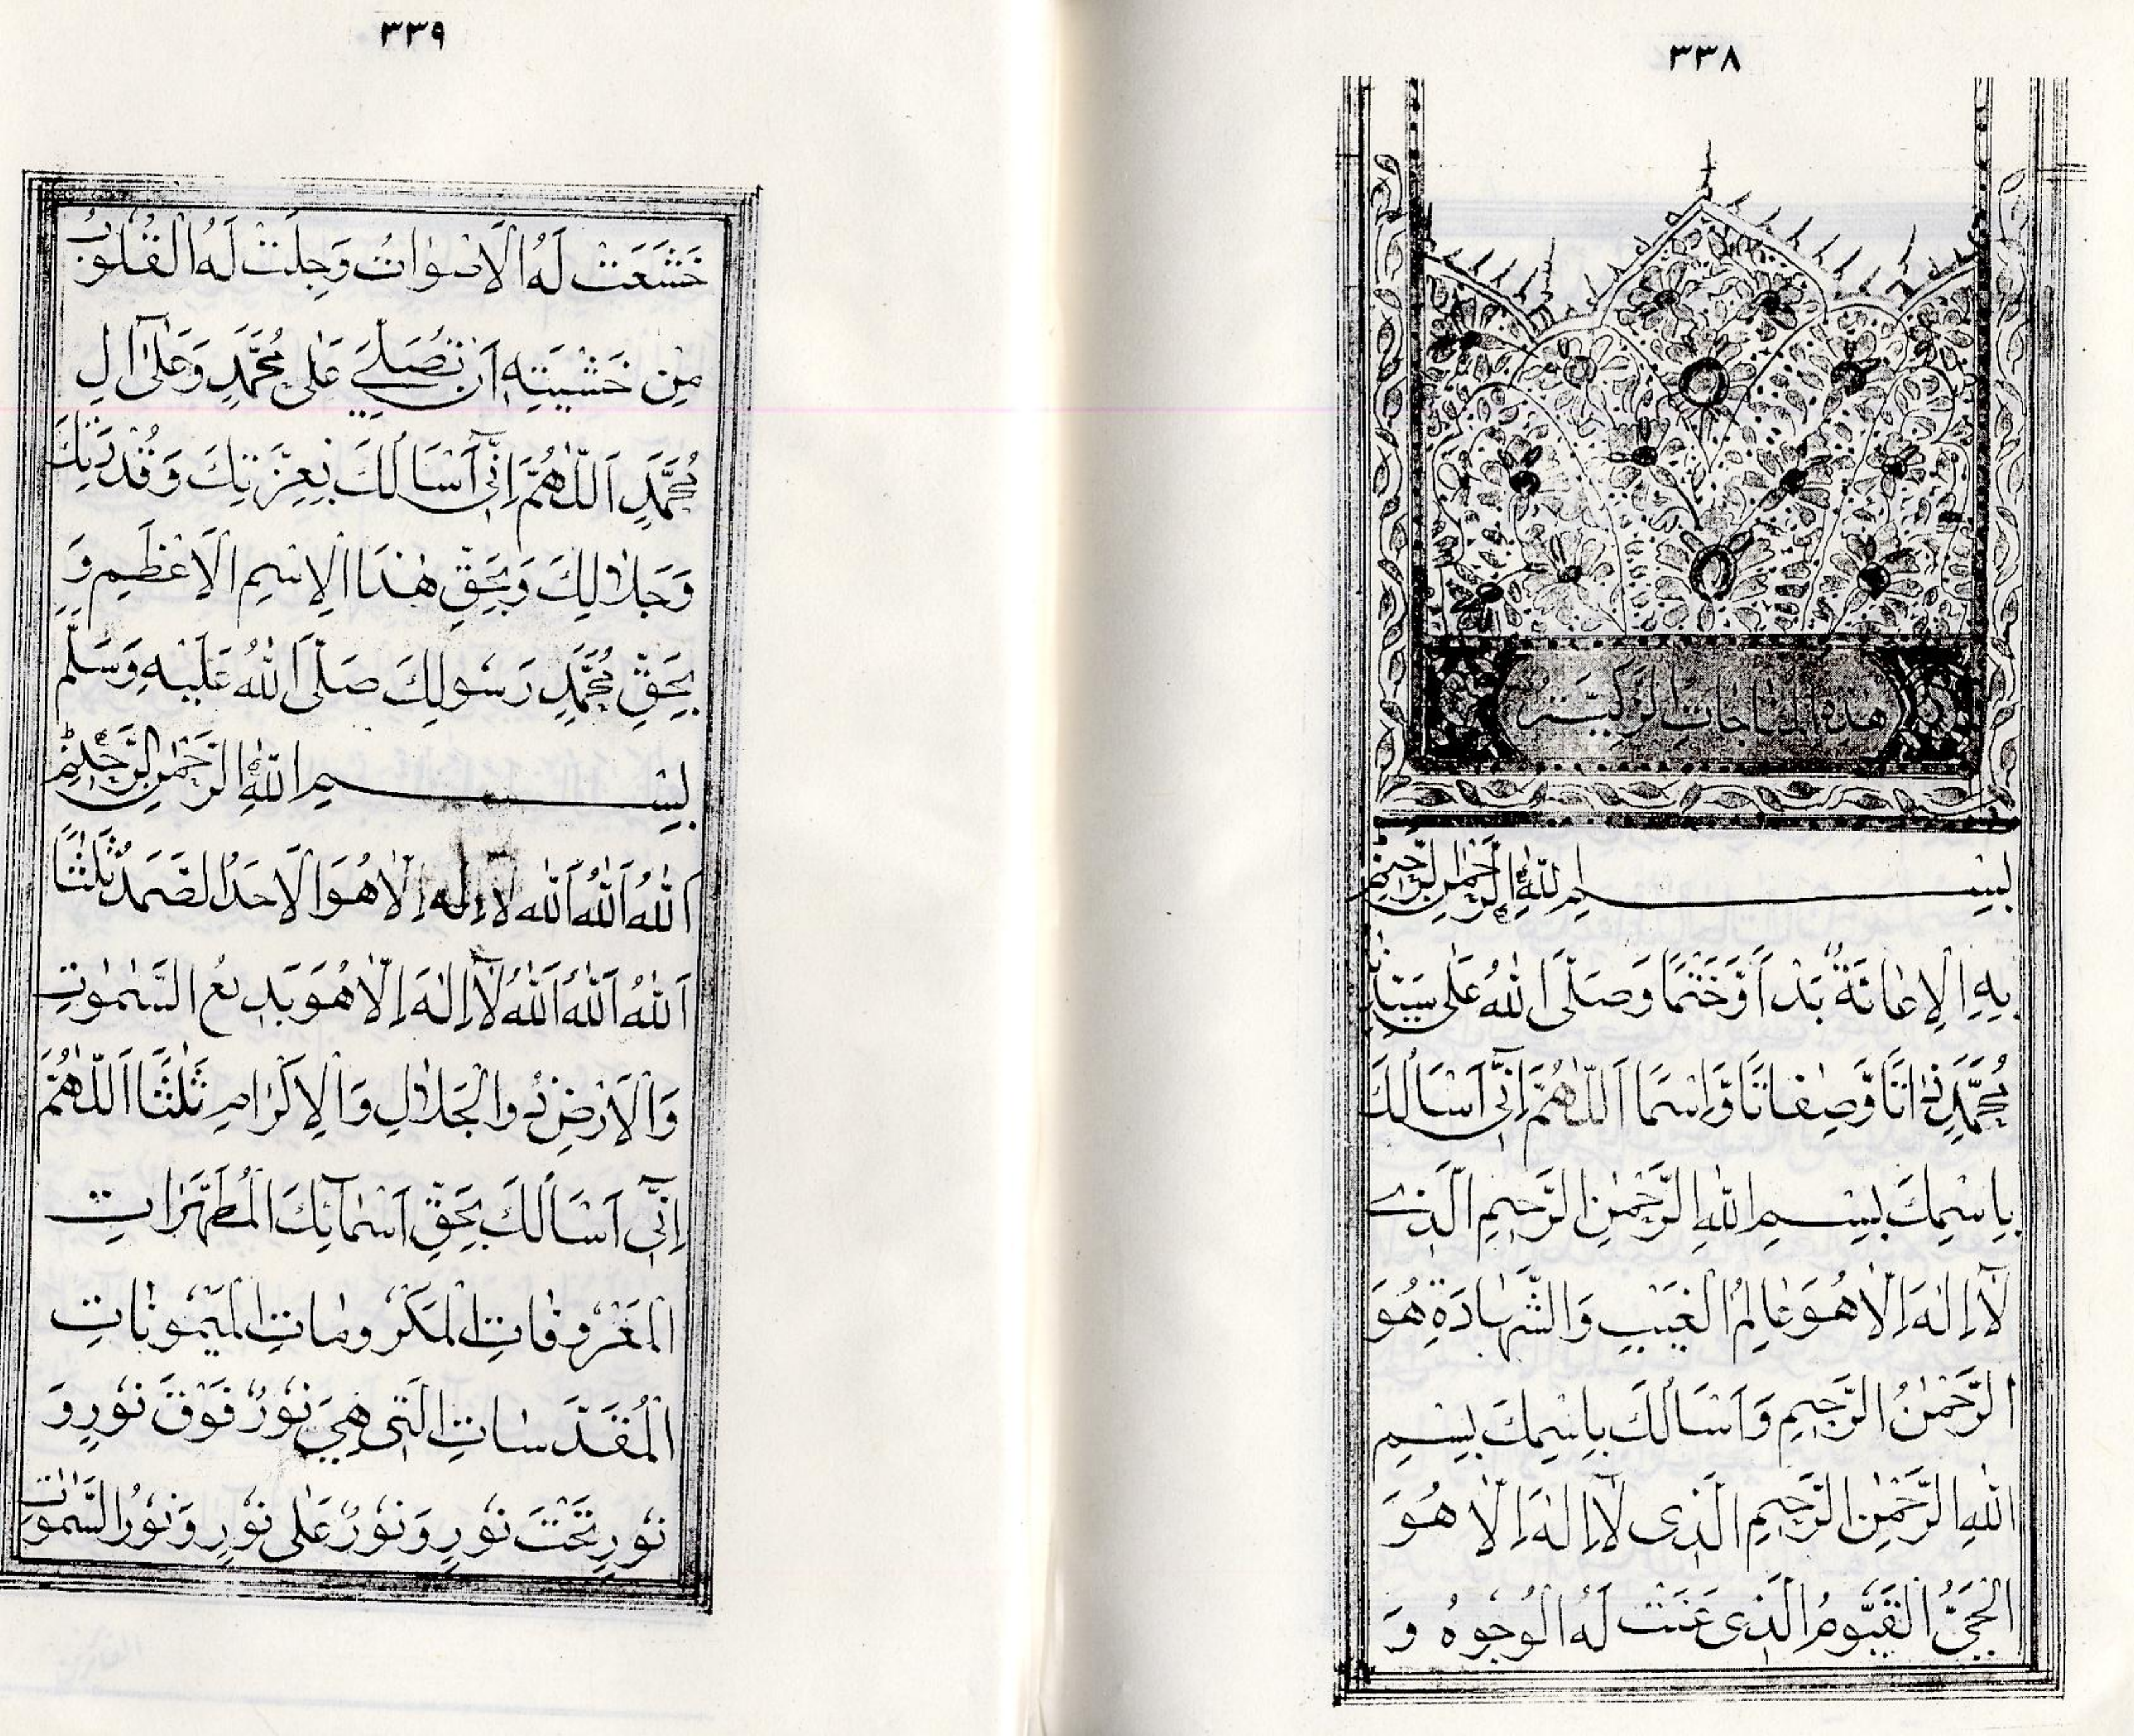 ٣٣٨
هٰذِهِ الْمُنَاجَاتُ الزَّكِيَّةُ
بِسْمِ اللّٰهِ الرَّحْمٰنِ الرَّحِيمِ
بِهِ الْاِعَانَةُ بَدْاً وَّخَتْمًا وَصَلَّى اللّٰهُ عَلٰى سَيِّدِنَا
مُحَمَّدٍ ذَاتًا وَّصِفَاتًا وَّاِسْمًا اَللّٰهُمَّ اِنِّى اَسْاَلُكَ
بِاسْمِكَ بِسْمِ اللّٰهِ الرَّحْمٰنِ الرَّحِيمِ الَّذِى
لَآ اِلٰهَ اِلَّا هُوَ عَالِمُ الْغَيْبِ وَالشَّهَادَةِ هُوَ
الرَّحْمٰنُ الرَّحِيمُ وَاَسْاَلُكَ بِاسْمِكَ بِسْمِ
اللّٰهِ الرَّحْمٰنِ الرَّحِيمِ الَّذِى لَآ اِلٰهَ اِلَّا هُوَ
الْحَىُّ الْقَيُّومُ الَّذِى عَنَتْ لَهُ الْوُجُوهُ وَ
٣٣٩
خَشَعَتْ لَهُ الْاَصْوَاتُ وَجِلَتْ لَهُ الْقُلُوبُ
مِنْ خَشْيَتِهِ اَنْ تُصَلِّىَ عَلٰى مُحَمَّدٍ وَعَلٰى آلِ
مُحَمَّدٍ اَللّٰهُمَّ اِنِّى اَسْاَلُكَ بِعِزَّتِكَ وَقُدْرَتِكَ
وَجَلَالِكَ وَبِحَقِّ هٰذَا الْاِسْمِ الْاَعْظَمِ وَ
بِحَقِّ مُحَمَّدٍ رَسُولِكَ صَلَّى اللّٰهُ عَلَيْهِ وَسَلَّمَ
بِسْمِ اللّٰهِ الرَّحْمٰنِ الرَّحِيمِ
اَللّٰهُ اَللّٰهُ اَللّٰهُ لَا اِلٰهَ اِلَّا هُوَ الْاَحَدُ الصَّمَدُ ثَلٰثًا
اَللّٰهُ اَللّٰهُ اَللّٰهُ لَآ اِلٰهَ اِلَّا هُوَ بَدِيعُ السَّمٰوٰتِ
وَالْاَرْضِ ذُو الْجَلَالِ وَالْاِكْرَامِ ثَلٰثًا اَللّٰهُمَّ
اِنِّى اَسْاَلُكَ بِحَقِّ اَسْمَآئِكَ الْمُطَهَّرَاتِ
الْمَعْرُوفَاتِ الْمَكْرُومَاتِ الْمَيْمُونَاتِ
الْمُقَدَّسَاتِ الَّتِى هِىَ نُورٌ فَوْقَ نُورٍ وَ
نُورٍ تَحْتَ نُورٍ وَنُورٌ عَلٰى نُورٍ وَنُورُ السَّمٰوٰتِ